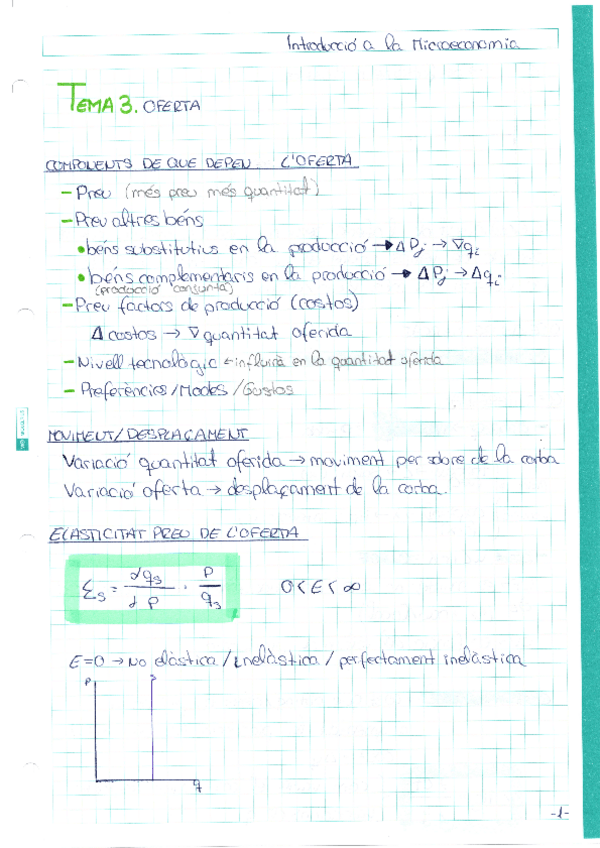 Introducció a la Microeconomia
TEMA 3. OFERTA
COMPONENTS DE QUE DEPEN L'OFERTA
- Preu (més preu més quantitat)
- Preu altres béns
• béns substitutius en la producció → Δ Pj → ∇ qi
• béns complementaris en la producció → Δ Pj → Δ qi
(producció conjunta)
- Preu factors de producció (costos)
Δ costos → ∇ quantitat oferida
- Nivell tecnològic ← influirà en la quantitat oferida
- Preferències / Modes / Gustos
MOVIMENT/DESPLAÇAMENT
Variació quantitat oferida → moviment per sobre de la corba
Variació oferta → desplaçament de la corba.
ELASTICITAT PREU DE L'OFERTA
Es = d qs / d P · P / qs 0 < E < ∞
E=0 → No elàstica / inelàstica / perfectament inelàstica
P
q
-1-